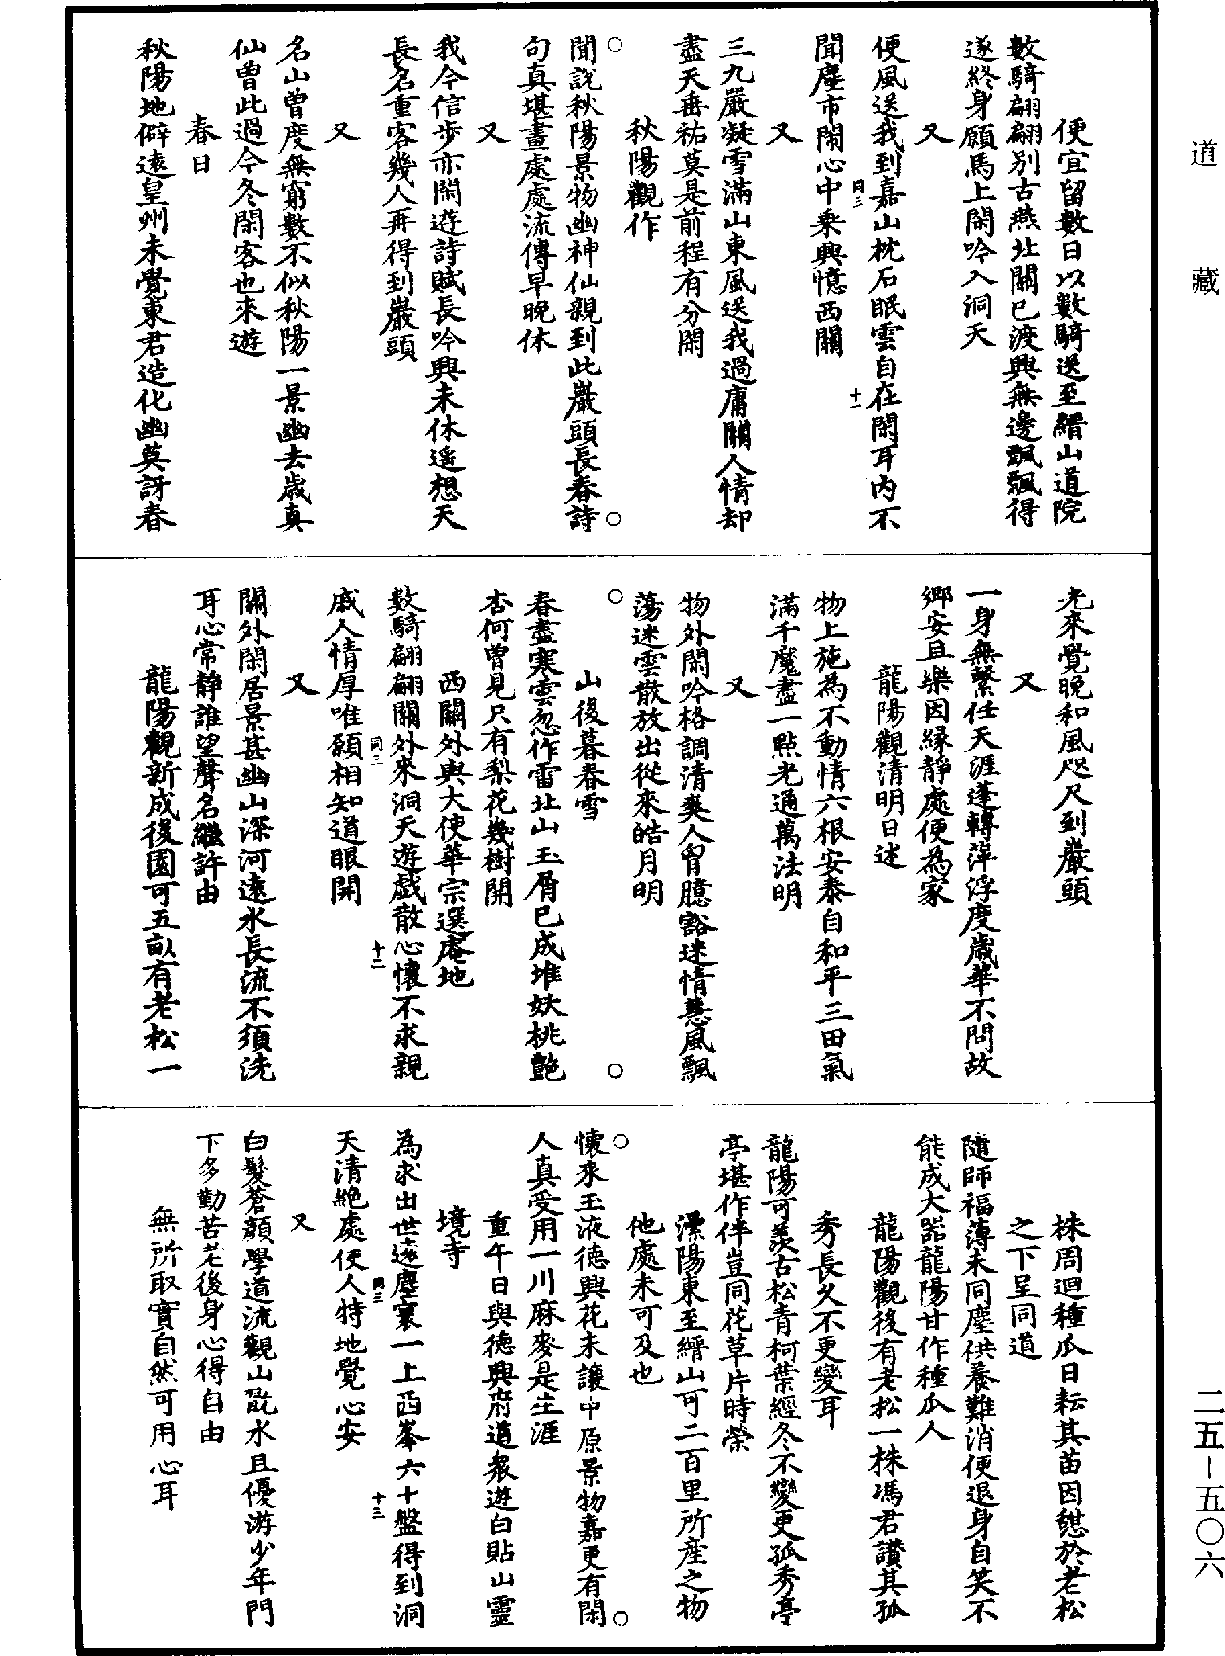 道藏
便宜留數日以數騎送至縉山道院
數騎翩翩別古燕北關已渡興無邊飄飄得
遂終身願馬上閑吟入洞天
又
便風送我到嘉山枕石眠雲自在閑耳內不
同三
十一
聞塵市鬧心中乗興憶西關
又
三九嚴凝雪滿山東風送我過庸關人情却
盡天垂祐莫是前程有分閑
秋陽觀作
○
○
聞說秋陽景物幽神仙親到此巖頭長春詩
句真堪畫處處流傳早晚休
又
我今信步亦閑遊詩賦長吟興未休遥想天
長名重客幾人再得到巖頭
又
名山曾度無窮數不似秋陽一景幽去歲真
仙曾此過今冬閑客也來遊
春日
秋陽地僻遠皇州未覺東君造化幽莫訝春
光來覺晚和風咫尺到巖頭
又
一身無繫任天涯蓬轉萍浮度歲華不問故
鄉安且樂因縁靜處便為家
龍陽觀清明日述
物上施為不動情六根安泰自和平三田氣
滿千魔盡一點光通萬法明
又
物外閑吟格調清爽人胷臆豁迷情慧風飄
蕩迷雲散放出從來皓月明
○
○
山後暮春雪
春盡寒雲忽作雷北山玉屑已成堆妖桃艷
杏何曾見只有梨花幾樹開
西關外與大使華宗選庵地
數騎翩翩關外來洞天遊戲散心懷不求親
同三
十二
戚人情厚唯願相知道眼開
又
關外閑居景甚幽山深河遠水長流不須洗
耳心常靜誰望聲名繼許由
龍陽觀新成後園可五畝有老松一
株周迴種瓜日耘其苗因憩於老松
之下呈同道
隨師福薄未同塵供養難消便退身自笑不
能成大器龍陽甘作種瓜人
龍陽觀後有老松一株馮君讃其孤
秀長久不更變耳
龍陽可羨古松青柯葉經冬不變更孤秀亭
亭堪作伴豈同花草片時榮
漂陽東至縉山可二百里所産之物
他處未可及也
○
○
懷來玉液德興花未讓中原景物嘉更有閑
人真受用一川麻麥是生涯
重午日與德興府道衆遊白貼山靈
境寺
為求出世遠塵寰一上西峯六十盤得到洞
同三
十三
天清絶處使人特地覺心安
又
白髮蒼顏學道流觀山翫水且優游少年門
下多勤苦老後身心得自由
無所取實自然可用心耳
二五–五〇六